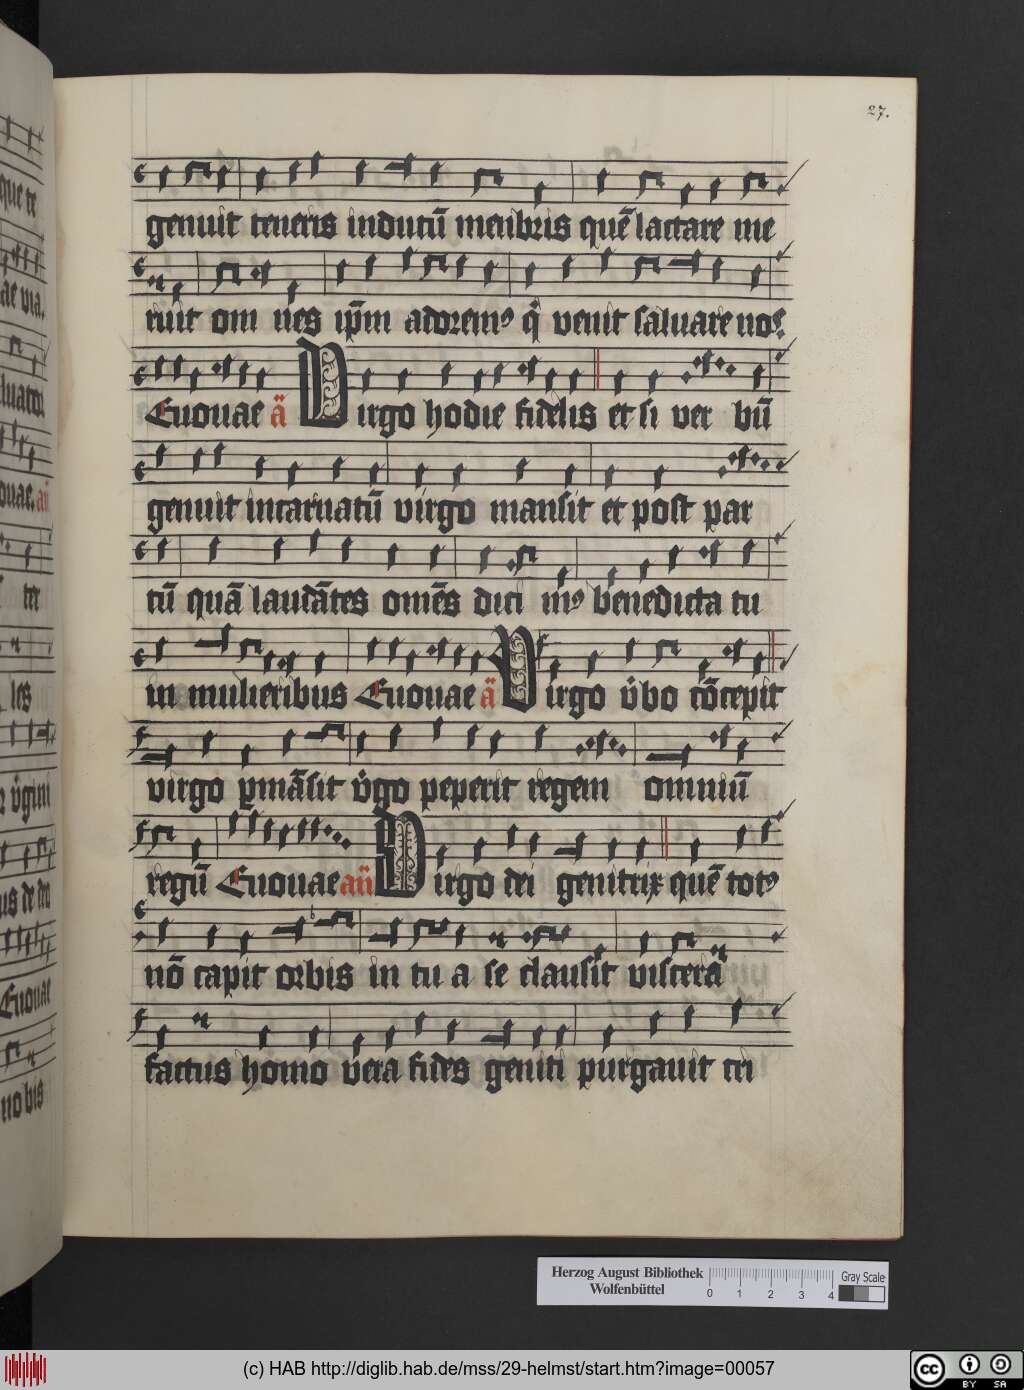 27.
genuit teneris indutū menbris quē lactare me
ruit om nes ipm̄ adorem⁹ q̇ venit saluare nos
Euouae ā Virgo hodie fidelis et si ver bū
genuit incarnatū virgo mansit et post par
tū quā laudātes omēs dici m⁹ benedicta tu
in mulieribus Euouae ā Virgo v̇bo cōcepit
virgo ꝑmāsit v̇go peperit regem omniū
regū Euouae an̄ Virgo dei genitrix quē tot⁹
nō capit orbis in tu a se clausit viscera
factus homo vera fides geniti purgauit cri
que te
ae via.
luator
ouae. an̄
ter
les
v̇gini
us de deo
Euouae
no bis
Herzog August Bibliothek
Wolfenbüttel
0 1 2 3 4
Gray Scale
(c) HAB http://diglib.hab.de/mss/29-helmst/start.htm?image=00057
cc BY SA